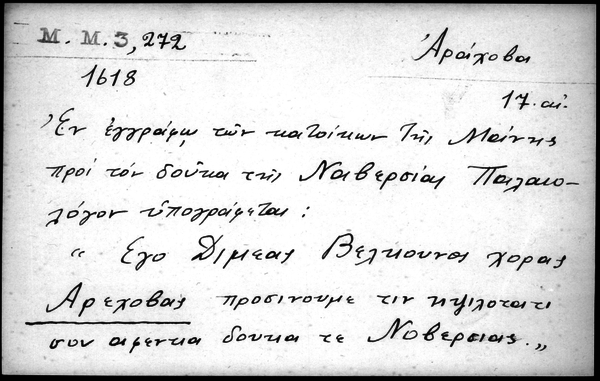 Μ. Μ. 3, 272
Ἀράχοβα
1618
17. αἰ.
Ἐν ἐγγράφῳ τῶν κατοίκων τῆς Μαίνης
πρὸς τὸν δοῦκα τῆς Ναβερσίας Παλαιο-
λόγον ὑπογράφεται:
" Εγο Διμεας Βελκουνος χορας
Αρεχοβας προσινουμε τιν ηψιλοτατι
σου αφεντια δουκα τε Νοβερσιας. „